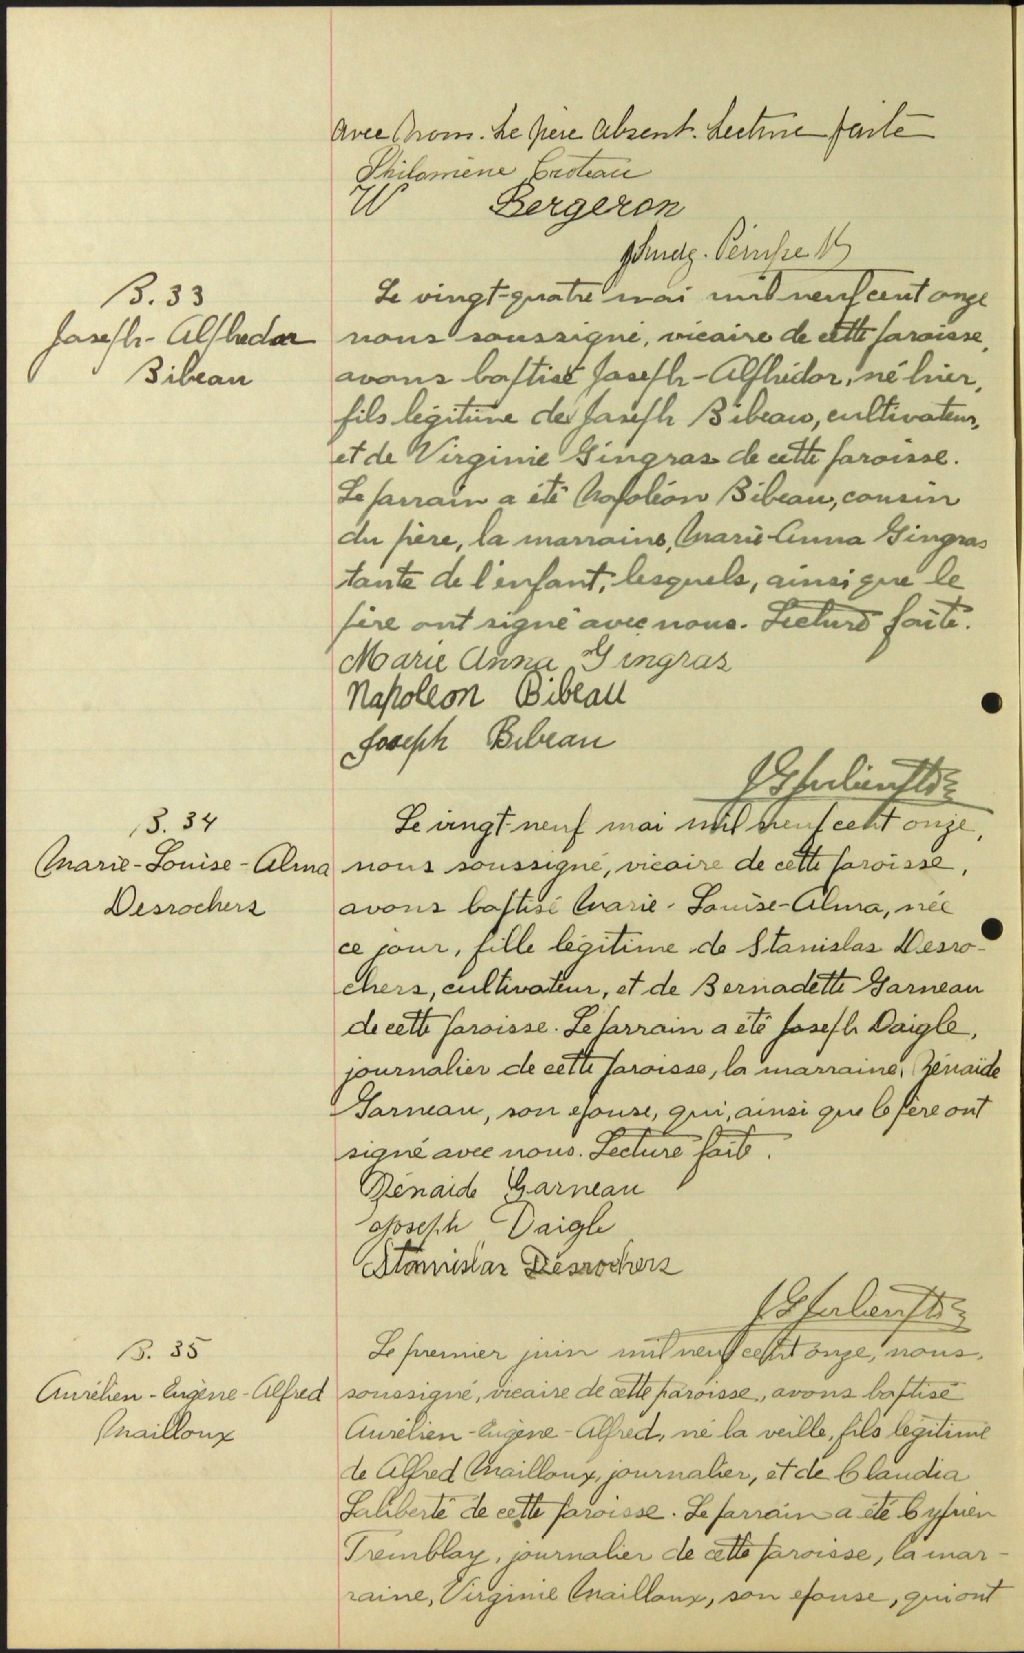 avec nous. Le père absent. Lecture faite
Philomène Croteau
W Bergeron
B. 33
Joseph-Alphédor
Bibeau
Le vingt-quatre mai mil neuf cent onze
nous soussigné, vicaire de cette paroisse,
avons baptisé Joseph-Alphédor, né hier,
fils légitime de Joseph Bibeau, cultivateur,
et de Virginie Gingras de cette paroisse.
Le parrain a été Napoléon Bibeau, cousin
du père, la marraine, Marie-Anna Gingras
tante de l'enfant, lesquels, ainsi que le
père ont signé avec nous. Lecture faite.
Marie Anna Gingras
Napoleon Bibeau
Joseph Bibeau
B. 34
Marie-Louise-Alma
Desrochers
Le vingt-neuf mai mil neuf cent onze,
nous soussigné, vicaire de cette paroisse,
avons baptisé Marie-Louise-Alma, née
ce jour, fille légitime de Stanislas Desro-
chers, cultivateur, et de Bernadette Garneau
de cette paroisse. Le parrain a été Joseph Daigle,
journalier de cette paroisse, la marraine, Zénaïde
Garneau, son épouse, qui, ainsi que le père ont
signé avec nous. Lecture faite.
Zénaide Garneau
Joseph Daigle
Stanislas Desrochers
B. 35
Aurélien-Eugène-Alfred
Mailloux
Le premier juin mil neuf cent onze, nous,
soussigné, vicaire de cette paroisse, avons baptisé
Aurélien-Eugène-Alfred, né la veille, fils légitime
de Alfred Mailloux, journalier, et de Claudia
Laliberté de cette paroisse. Le parrain a été Cyprien
Tremblay, journalier de cette paroisse, la mar-
raine, Virginie Mailloux, son épouse, qui ont